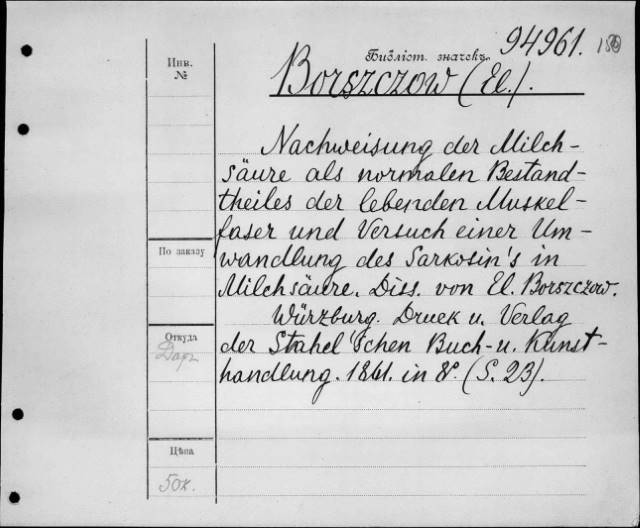 94961.
Библіот. значекъ.
Инв.
№
Borszczow (El.).
Nachweisung der Milch-
säure als normalen Bestand-
theiles der lebenden Muskel-
faser und Versuch einer Um-
wandlung des Sarkosin's in
Milchsäure. Diss. von El. Borszczow.
Würzburg. Druck u. Verlag
der Stahel'schen Buch- u. Kunst-
handlung. 1861. in 8°. (S. 23).
По заказу
Откуда
Даръ
Цѣна
50к.